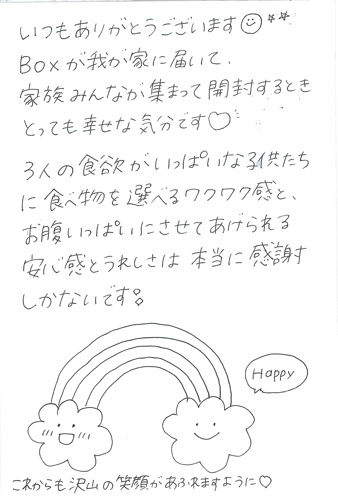 いつもありがとうございます☺☆☆
Boxが我が家に届いて、
家族みんなが集まって開封するとき
とっても幸せな気分です♡
3人の食欲がいっぱいな子供たち
に食べ物を選べるワクワク感と、
お腹いっぱいにさせてあげられる
安心感とうれしさは本当に感謝
しかないです。
Happy
これからも沢山の笑顔があふれますように♡